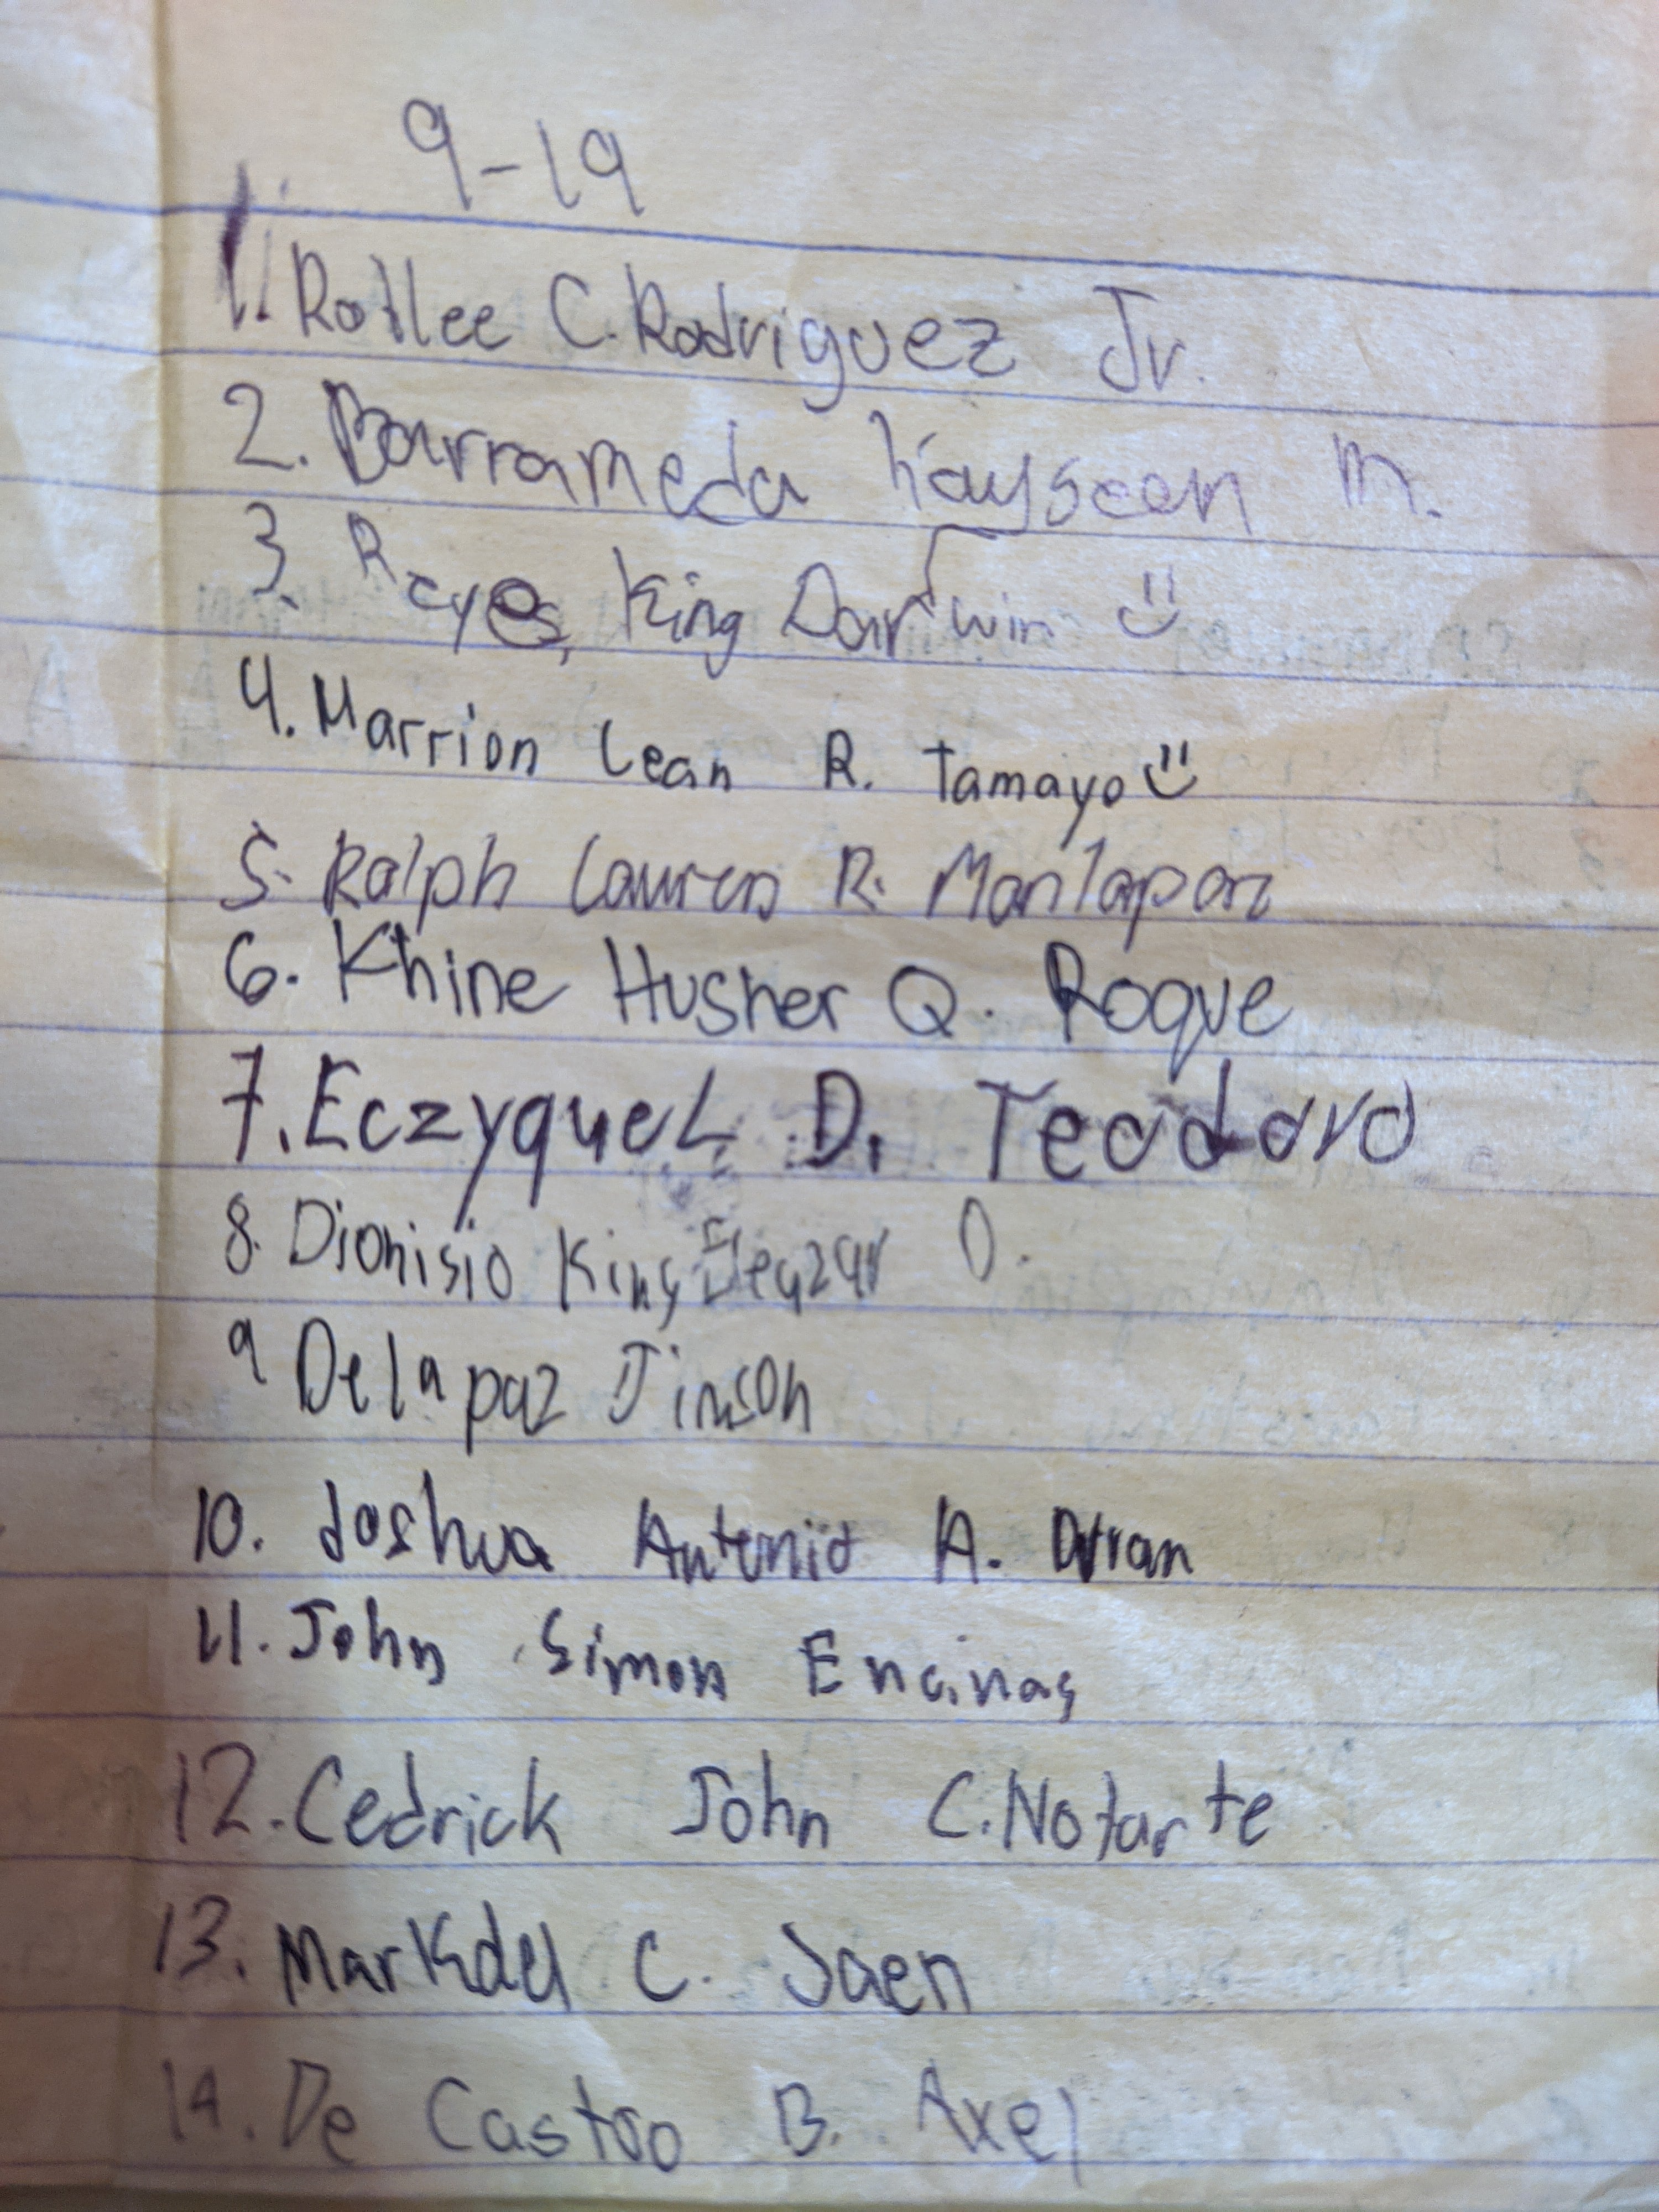 9-19
1. Rotlee C. Rodriguez Jr.
2. Barrameda Kayseen M.
3. Reyes, King Darwin
4. Marrion Lean R. Tamayo
5. Ralph Lauren R. Manlapaz
6. Khine Husher Q. Roque
7. Eczyquel D. Teodoro
8. Dionisio King O.
9 Dela paz Jimson
10. Joshua Antonio A.
11. John Simon Encinas
12. Cedrick John C. Notarte
13. Markdel C. Jaen
14. De Castro B. Axel